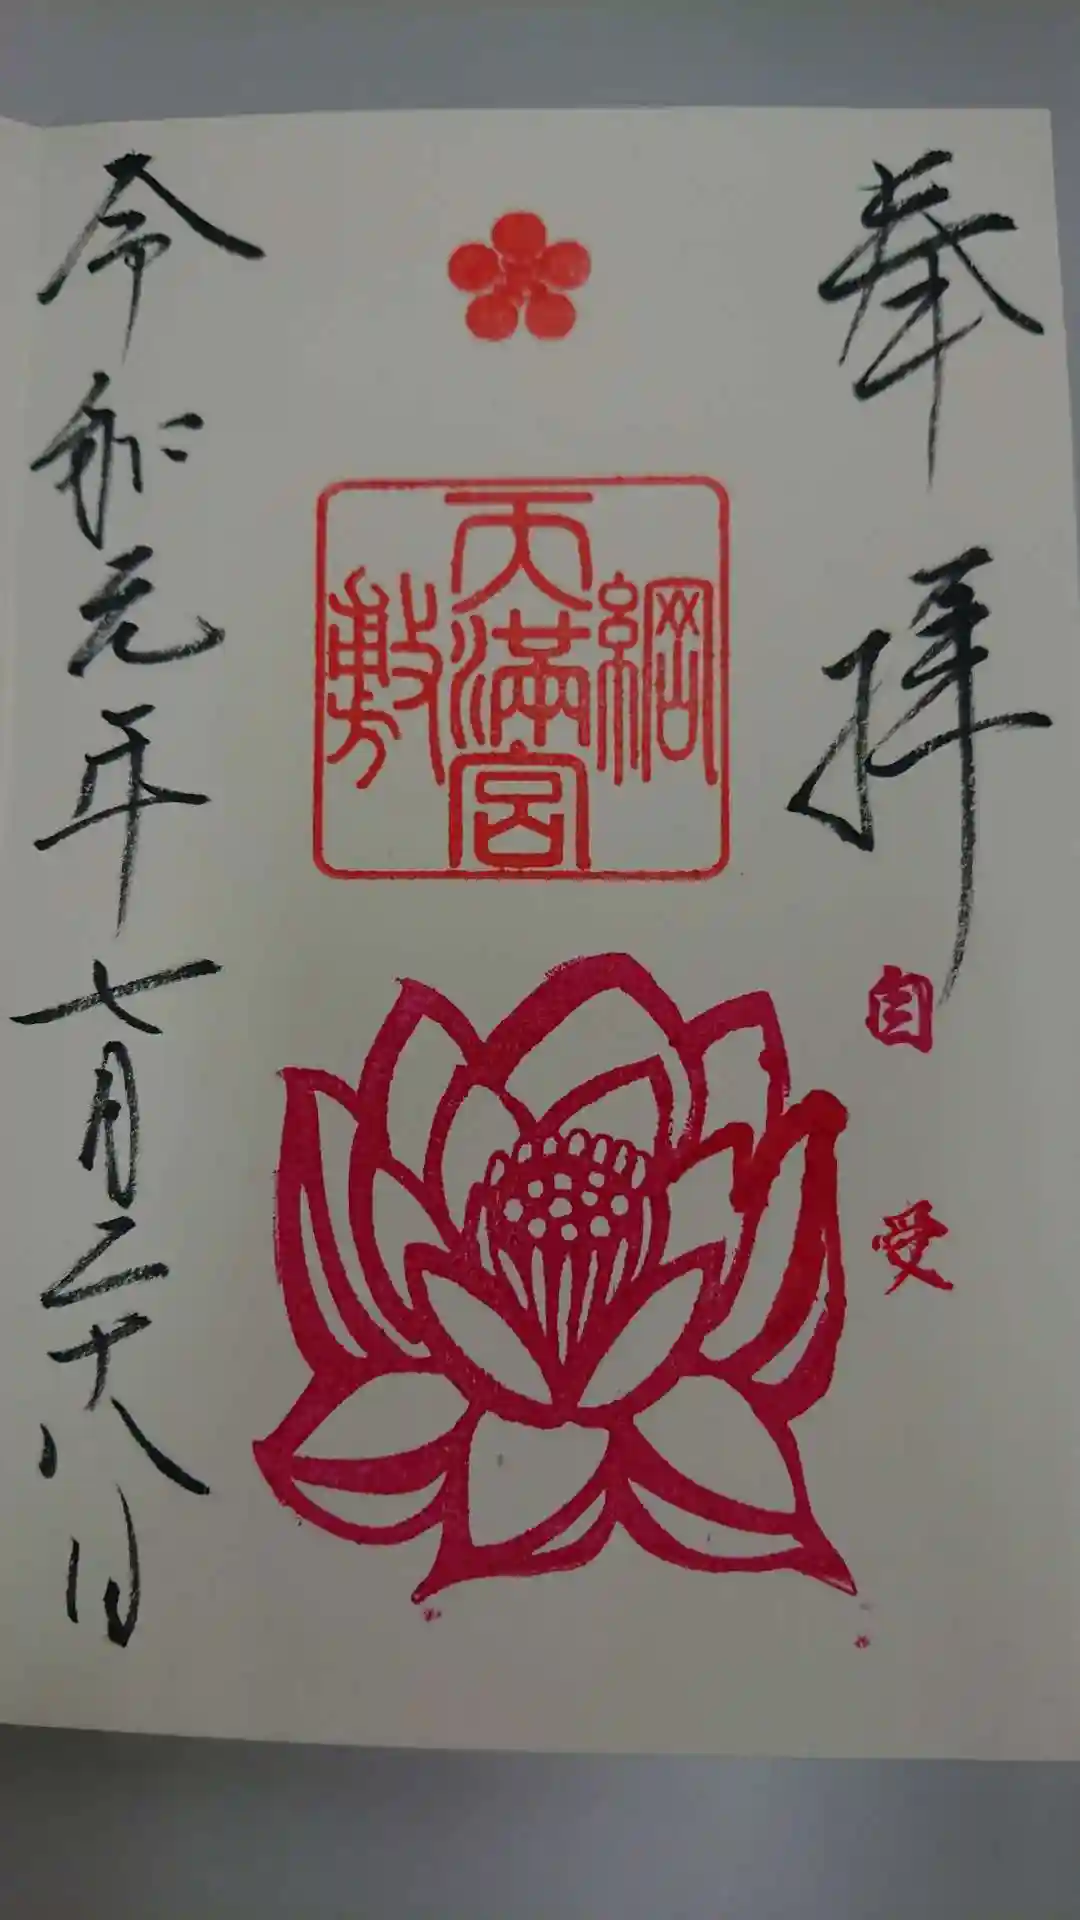 奉拝
自受
綱
天満宮
敷
令和元年七月二十八日